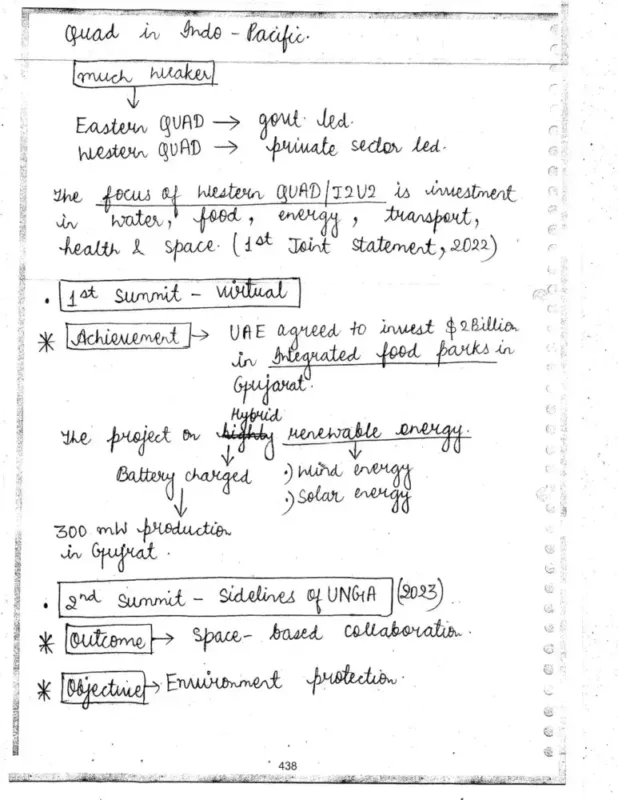 Quad in Indo - Pacific.
much weaker
Eastern QUAD → govt. led.
Western QUAD → private sector led.
The focus of Western QUAD/I2U2 is investment
in water, food, energy, transport,
health & space. (1st Joint Statement, 2022)
• 1st Summit - Virtual
* Achievement → UAE agreed to invest $2Billion
in Integrated food parks in
Gujarat.
Hybrid
The project on highly renewable energy.
Battery charged .) Wind energy
.) Solar energy
300 MW production
in Gujrat.
• 2nd Summit - Sidelines of UNGA (2023)
* Outcome → Space-based collaboration.
* Objective → Environment protection.
438